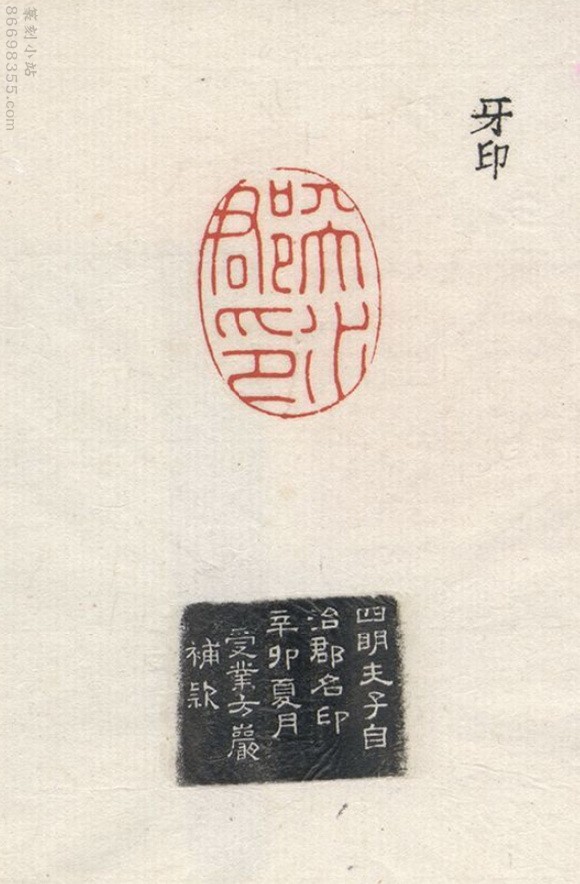 牙印
郡印
四明夫子自
治郡名印
辛卯夏月
受業方巖
補款
篆刻小站
86698355.com